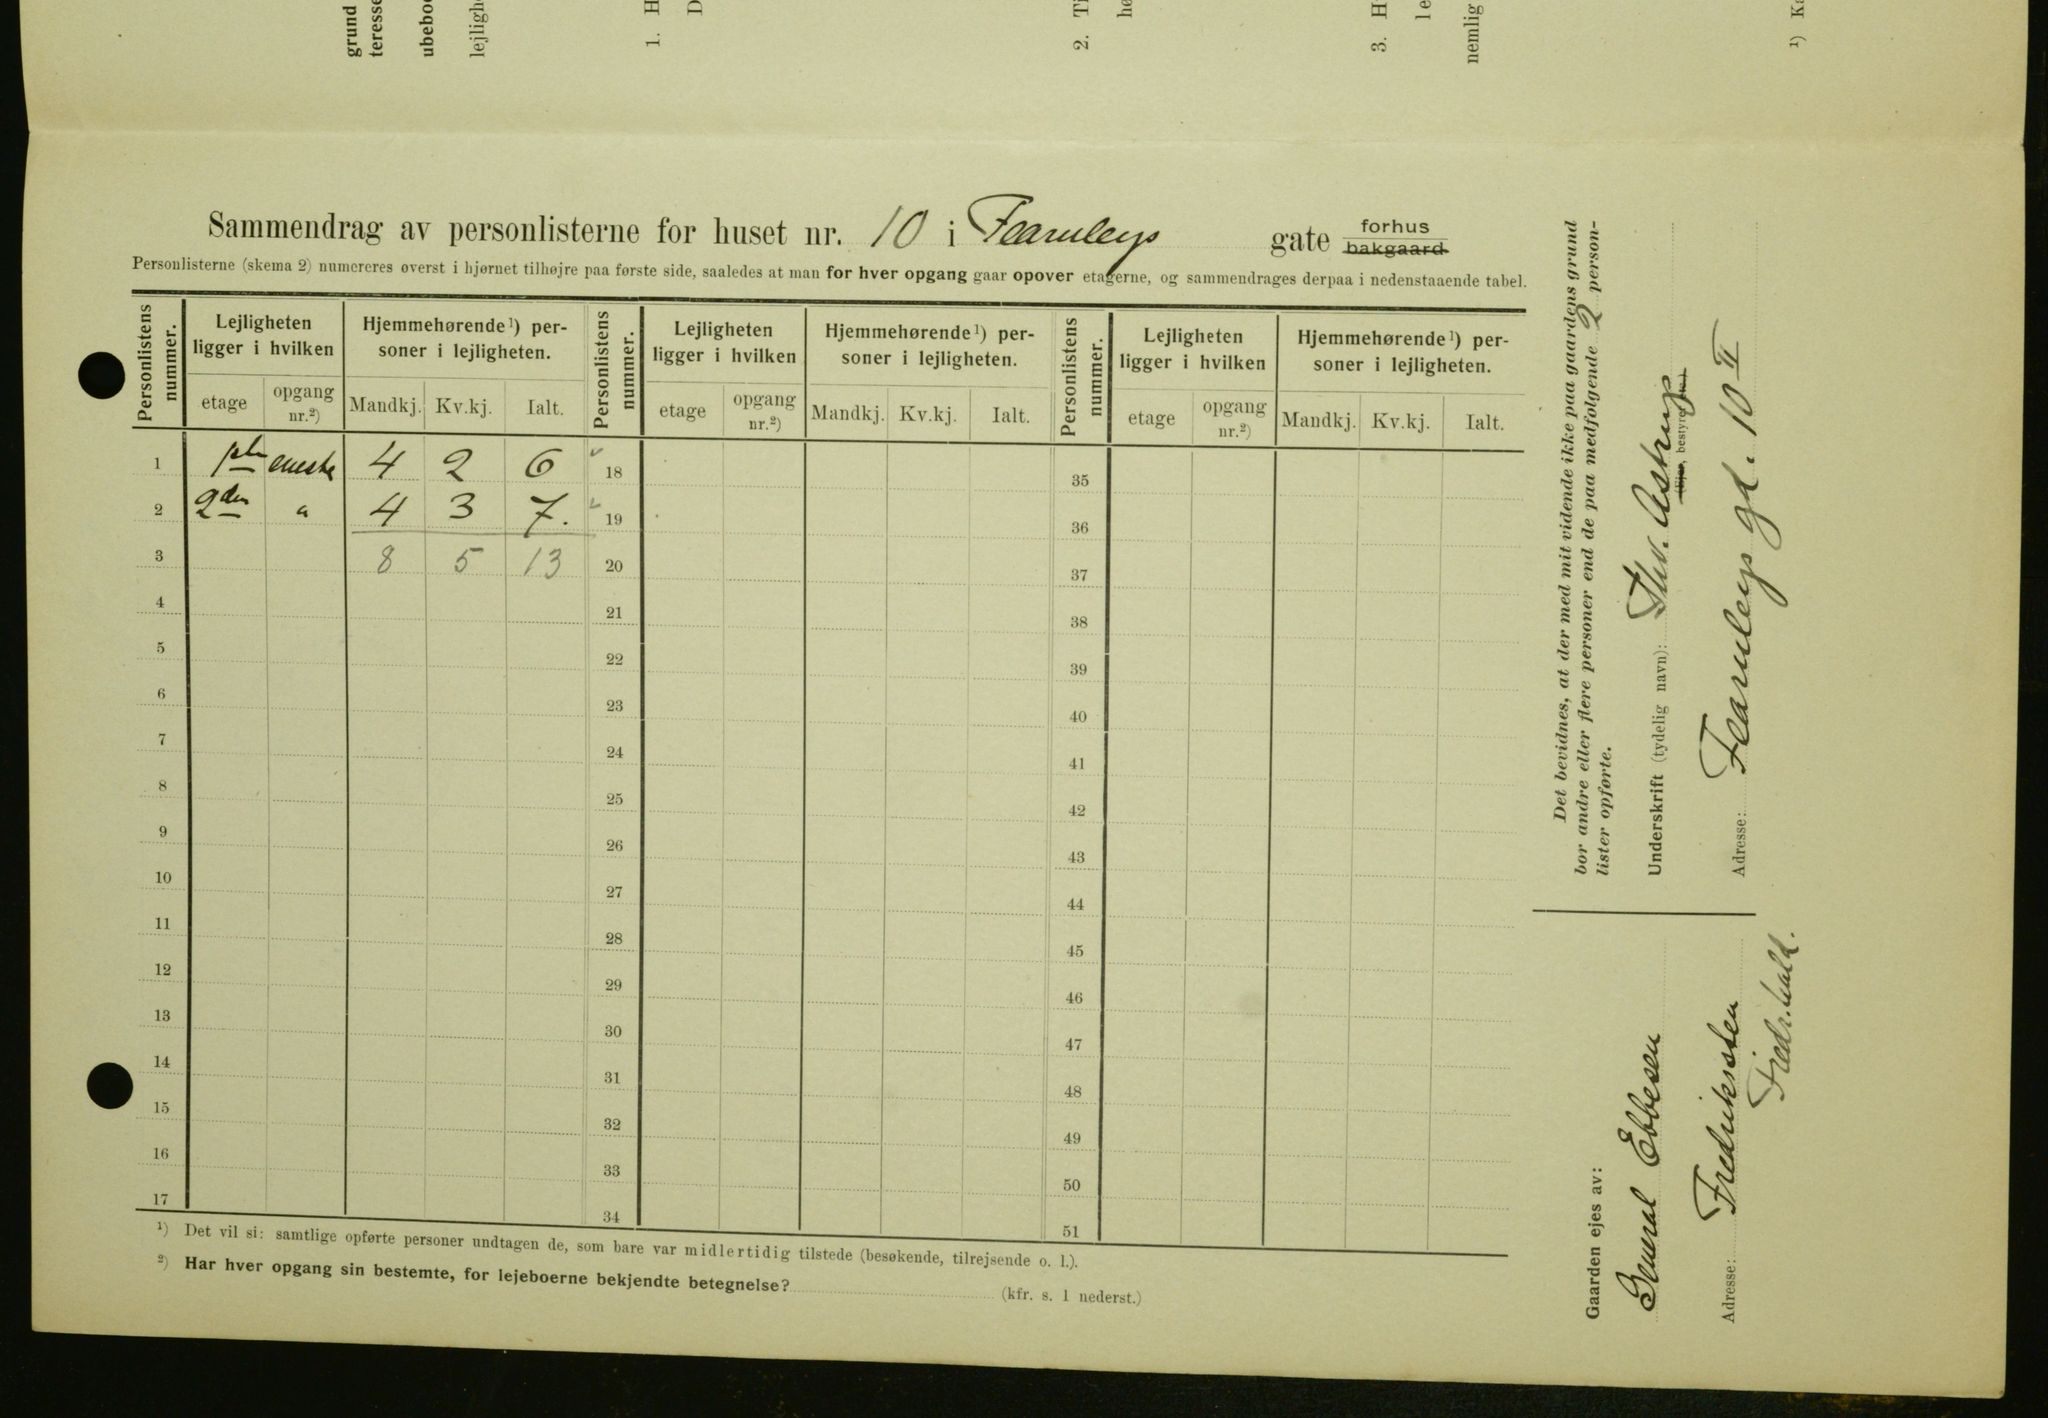 grund
teresse
ubeboe
lejlighe
1. H
D
2. Ti
hø
3. H
le
nemlig
¹) Ka
Sammendrag av personlisterne for huset nr. 10 i Fearnleys gate forhus
bakgaard
Personlisterne (skema 2) numereres øverst i hjørnet tilhøjre paa første side, saaledes at man for hver opgang gaar opover etagerne, og sammendrages derpaa i nedenstaaende tabel.
Personlistens nummer. Lejligheten ligger i hvilken Hjemmehørende¹) personer i lejligheten. Personlistens nummer. Lejligheten ligger i hvilken Hjemmehørende¹) personer i lejligheten. Personlistens nummer. Lejligheten ligger i hvilken Hjemmehørende¹) personer i lejligheten.
etage opgang nr.²) Mandkj. Kv.kj. Ialt. etage opgang nr.²) Mandkj. Kv.kj. Ialt. etage opgang nr.²) Mandkj. Kv.kj. Ialt.
1 1ste eneste 4 2 6 18 35
2 2den " 4 3 7. 19 36
3 8 5 13 20 37
4 21 38
5 22 39
6 23 40
7 24 41
8 25 42
9 26 43
10 27 44
11 28 45
12 29 46
13 30 47
14 31 48
15 32 49
16 33 50
17 34 51
¹) Det vil si: samtlige opførte personer undtagen de, som bare var midlertidig tilstede (besøkende, tilrejsende o. l.).
²) Har hver opgang sin bestemte, for lejeboerne bekjendte betegnelse? (kfr. s. 1 nederst.)
Det bevidnes, at der med mit vidende ikke paa gaardens grund
bor andre eller flere personer end de paa medfolgende 2 person-
lister opførte.
Underskrift (tydelig navn): Thv. Astrup
(Ejer, bestyrer etc.)
Adresse: Fearnleys gd. 10 II
Gaarden ejes av:
General Ebbesen
Adresse: Fredriksten
Fredr.hald.